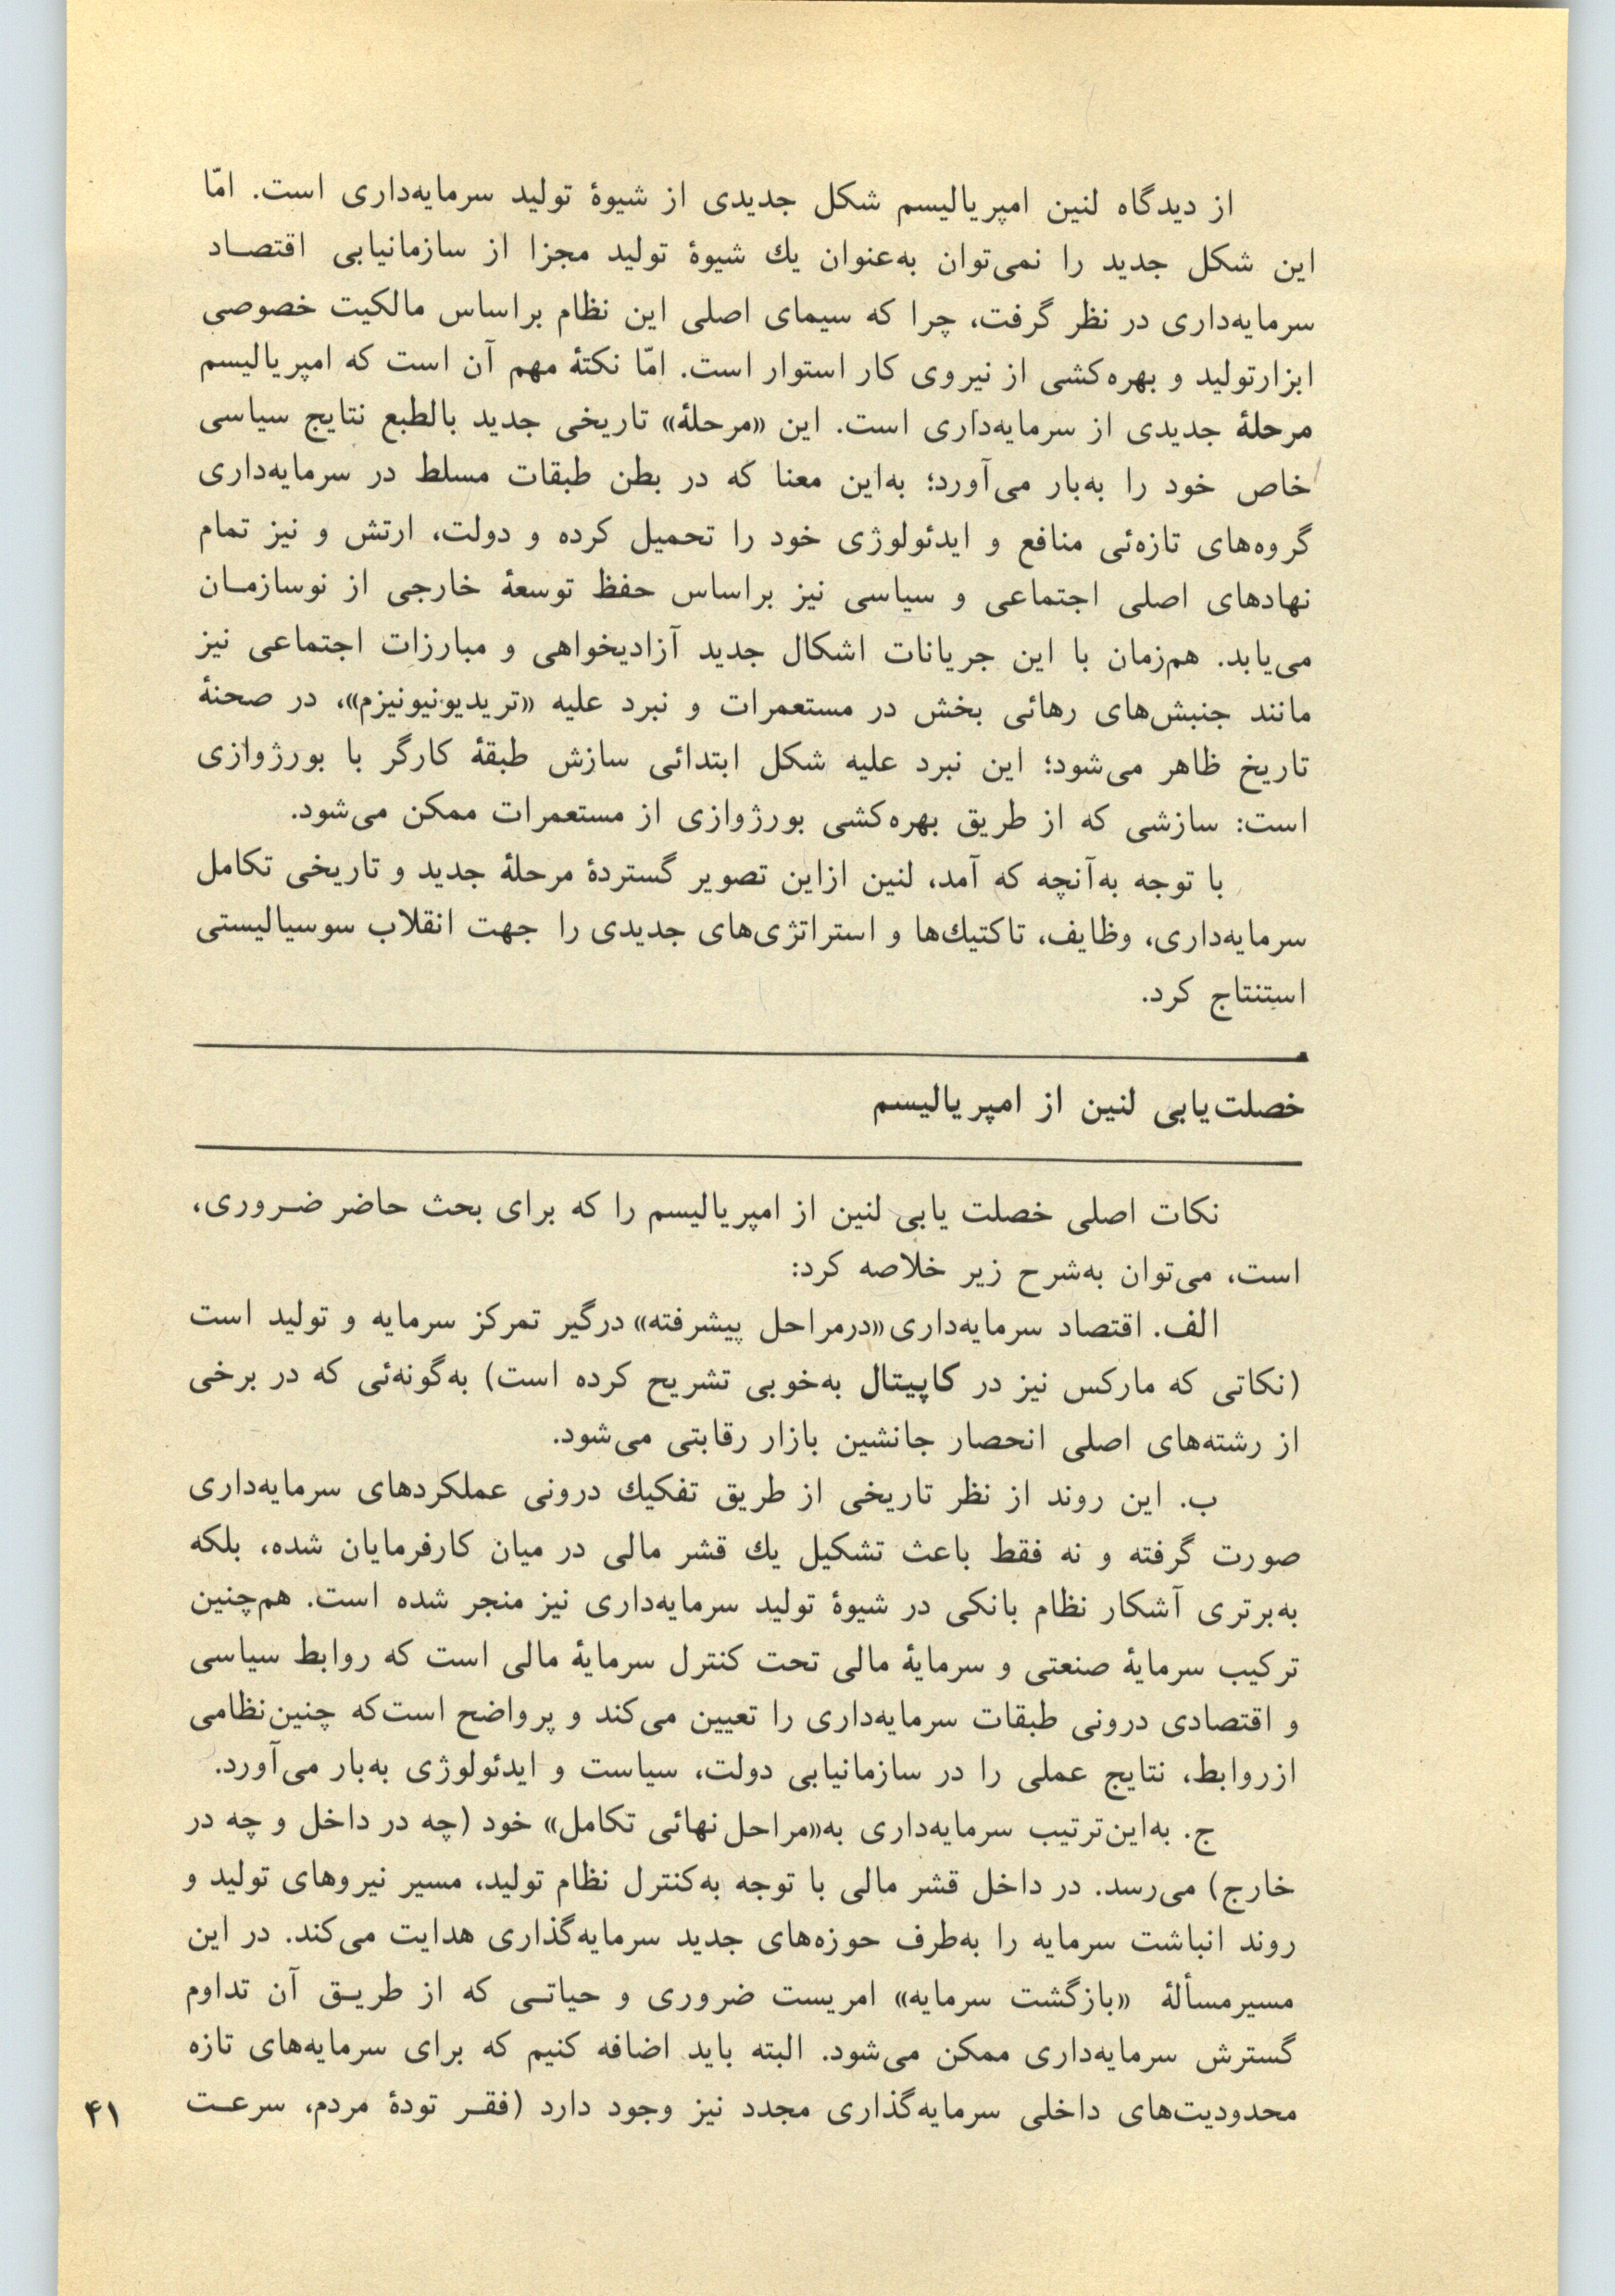 از دیدگاه لنین امپریالیسم شکل جدیدی از شیوهٔ تولید سرمایه‌داری است. امّا
این شکل جدید را نمی‌توان به‌عنوان یك شیوهٔ تولید مجزا از سازمانیابی اقتصاد
سرمایه‌داری در نظر گرفت، چرا که سیمای اصلی این نظام براساس مالکیت خصوصی
ابزارتولید و بهره‌کشی از نیروی کار استوار است. امّا نکتهٔ مهم آن است که امپریالیسم
مرحلهٔ جدیدی از سرمایه‌داری است. این «مرحلهٔ» تاریخی جدید بالطبع نتایج سیاسی
خاص خود را به‌بار می‌آورد؛ به‌این معنا که در بطن طبقات مسلط در سرمایه‌داری
گروه‌های تازه‌ئی منافع و ایدئولوژی خود را تحمیل کرده و دولت، ارتش و نیز تمام
نهادهای اصلی اجتماعی و سیاسی نیز براساس حفظ توسعهٔ خارجی از نوسازمان
می‌یابد. هم‌زمان با این جریانات اشکال جدید آزادیخواهی و مبارزات اجتماعی نیز
مانند جنبش‌های رهائی بخش در مستعمرات و نبرد علیه «تریدیونیونیزم»، در صحنهٔ
تاریخ ظاهر می‌شود؛ این نبرد علیه شکل ابتدائی سازش طبقهٔ کارگر با بورژوازی
است: سازشی که از طریق بهره‌کشی بورژوازی از مستعمرات ممکن می‌شود.
با توجه به‌آنچه که آمد، لنین ازاین تصویر گستردهٔ مرحلهٔ جدید و تاریخی تکامل
سرمایه‌داری، وظایف، تاکتیك‌ها و استراتژی‌های جدیدی را جهت انقلاب سوسیالیستی
استنتاج کرد.
خصلت‌یابی لنین از امپریالیسم
نکات اصلی خصلت یابی لنین از امپریالیسم را که برای بحث حاضر ضروری،
است، می‌توان به‌شرح زیر خلاصه کرد:
الف. اقتصاد سرمایه‌داری«درمراحل پیشرفته» درگیر تمرکز سرمایه و تولید است
(نکاتی که مارکس نیز در کاپیتال به‌خوبی تشریح کرده است) به‌گونه‌ئی که در برخی
از رشته‌های اصلی انحصار جانشین بازار رقابتی می‌شود.
ب. این روند از نظر تاریخی از طریق تفکیك درونی عملکردهای سرمایه‌داری
صورت گرفته و نه فقط باعث تشکیل یك قشر مالی در میان کارفرمایان شده، بلکه
به‌برتری آشکار نظام بانکی در شیوهٔ تولید سرمایه‌داری نیز منجر شده است. هم‌چنین
ترکیب سرمایهٔ صنعتی و سرمایهٔ مالی تحت کنترل سرمایهٔ مالی است که روابط سیاسی
و اقتصادی درونی طبقات سرمایه‌داری را تعیین می‌کند و پرواضح است‌که چنین‌نظامی
ازروابط، نتایج عملی را در سازمانیابی دولت، سیاست و ایدئولوژی به‌بار می‌آورد.
ج. به‌این‌ترتیب سرمایه‌داری به«مراحل‌نهائی تکامل» خود (چه در داخل و چه در
خارج) می‌رسد. در داخل قشر مالی با توجه به‌کنترل نظام تولید، مسیر نیروهای تولید و
روند انباشت سرمایه را به‌طرف حوزه‌های جدید سرمایه‌گذاری هدایت می‌کند. در این
مسیرمسألهٔ «بازگشت سرمایه» امریست ضروری و حیاتی که از طریق آن تداوم
گسترش سرمایه‌داری ممکن می‌شود. البته باید اضافه کنیم که برای سرمایه‌های تازه
محدودیت‌های داخلی سرمایه‌گذاری مجدد نیز وجود دارد (فقر تودهٔ مردم، سرعت
۴۱